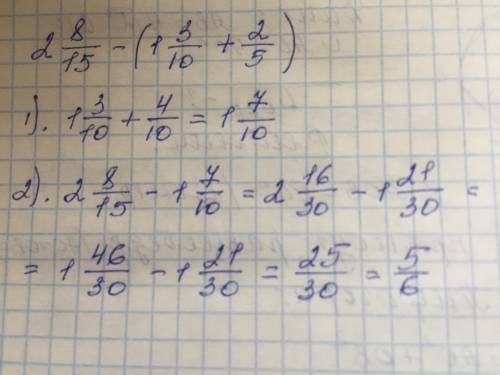 2 8/15 - (1 3/10 + 2/5)
1). 1 3/10 + 4/10 = 1 7/10
2). 2 8/15 - 1 7/10 = 2 16/30 - 1 21/30 =
= 1 46/30 - 1 21/30 = 25/30 = 5/6